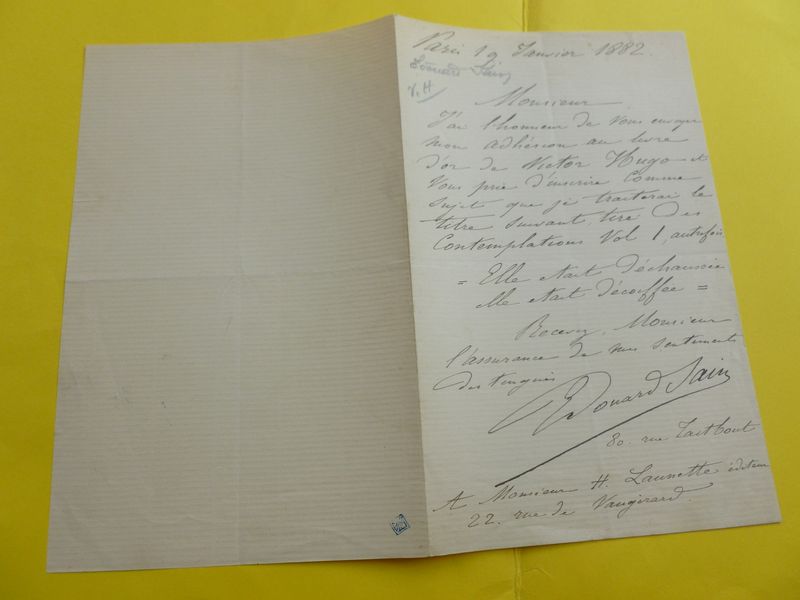 Paris 19 Janvier 1882.
Edouard Sain
V. H
Monsieur
J'ai l'honneur de vous envoyer
mon adhésion au livre
d'or de Victor Hugo et
vous prie d'inscrire comme
sujet que je traiterai le
titre suivant, tiré des
Contemplations Vol 1, autrefois
= Elle était déchaussée
elle était décoiffée =
Recevez, Monsieur
l'assurance de mes sentiments
distingués
Edouard Sain
80. rue Taitbout
A Monsieur H. Launette éditeur
22. rue de Vaugirard.